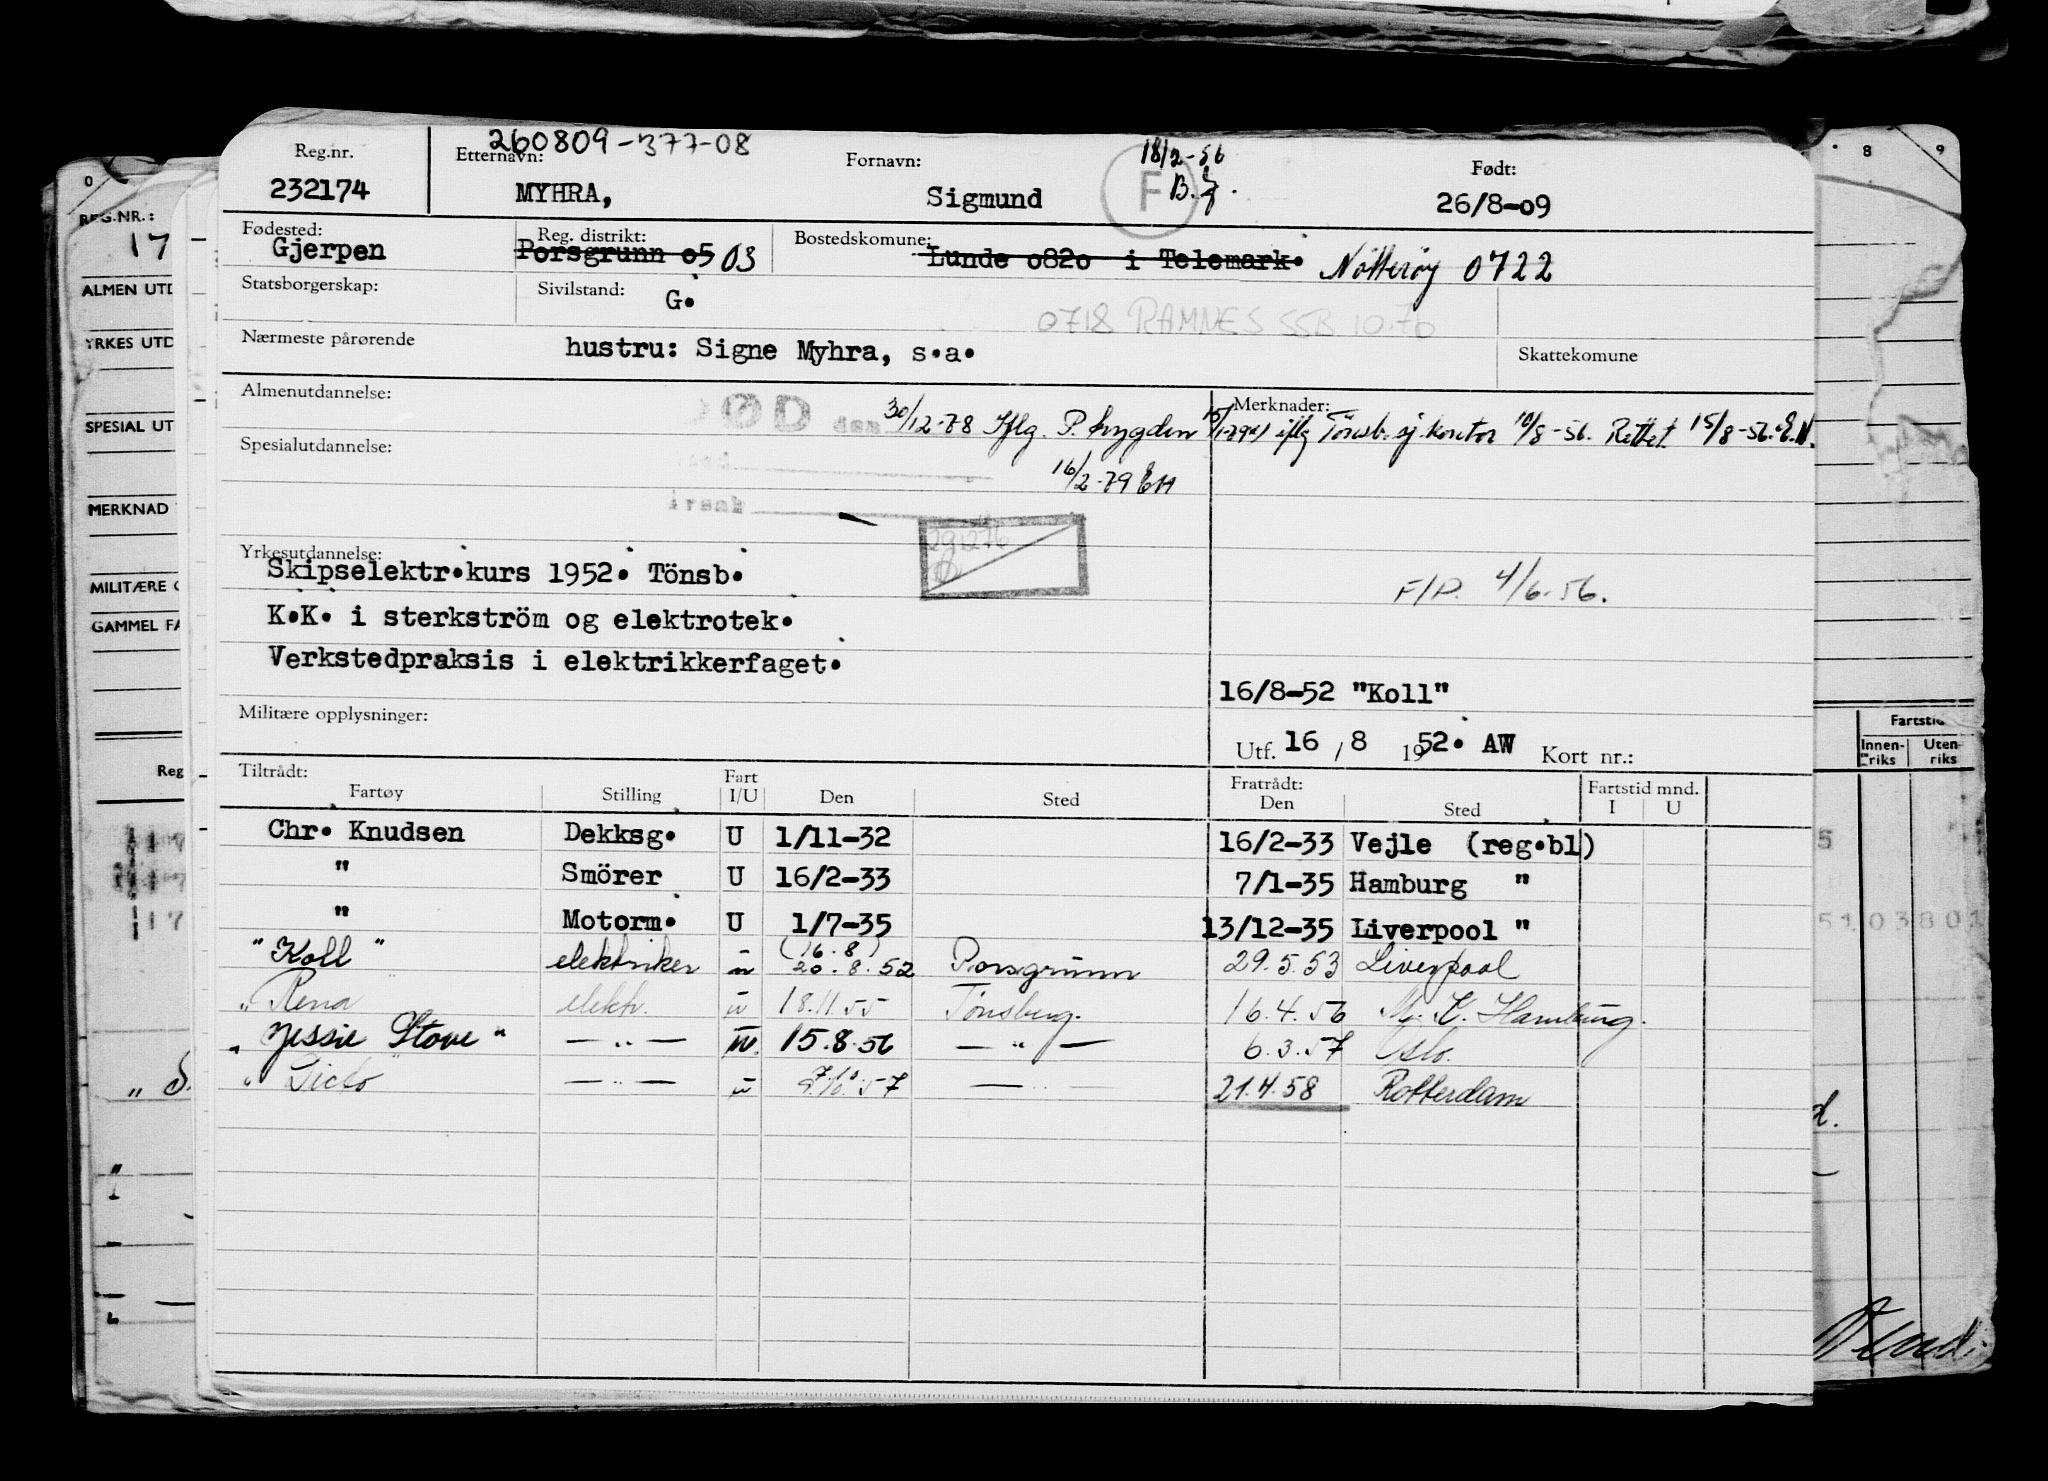 260809-377-08
Reg.nr. Etternavn: Fornavn: 18/2-56 Født:
232174 MYHRA, Sigmund F B. 26/8-09
Fødested: Reg. distrikt: Bostedskomune:
Gjerpen Porsgrunn o5 03 Lunde o82o i Telemark. Nøtterøy 0722
Statsborgerskap: Sivilstand: G.
0718 RAMNES SSB 10.70
Nærmeste pårørende hustru: Signe Myhra, s.a. Skattekomune
Almenutdannelse: Merknader:
DØD den 30/12-78 Iflg. P. trygden iflg Tønsb. sj. kontor 10/8-56. Rettet 15/8-56. E.N.
Spesialutdannelse:
16/2-79 EH
årsak
291276
Yrkesutdannelse:
Skipselektr.kurs 1952. Tönsb.
F/P. 4/6-56.
K.K. i sterkström og elektrotek.
Verkstedpraksis i elektrikkerfaget.
16/8-52 "Koll"
Militære opplysninger:
Utf. 16 / 8 1952. AW Kort nr.:
Tiltrådt: Fratrådt: Fartstid mnd.
Fartøy Stilling Fart I/U Den Sted Den Sted I U
Chr. Knudsen Dekksg. U 1/11-32 16/2-33 Vejle (reg.bl)
" Smörer U 16/2-33 7/1-35 Hamburg "
" Motorm. U 1/7-35 13/12-35 Liverpool "
(16.8)
"Koll" elektriker u 20.8.52 Porsgrunn 29.5.53 Liverpool
"Rena" elektr. u 18.11.55 Tønsberg. 16.4.56 M. K. Hamburg.
"Jessie Stove" — " — u. 15.8.56 — " — 6.3.57 Oslo.
"Ticto" — " — u 7/10.57 — " — 21.4.58 Rotterdam
0
REG.NR.:
17
ALMEN UTD
YRKES UTD
SPESIAL UT
MERKNAD
MILITÆRE O
GAMMEL FA
Reg
8 9
Fartstid
Innenriks Utenriks
5
51 03801
d.